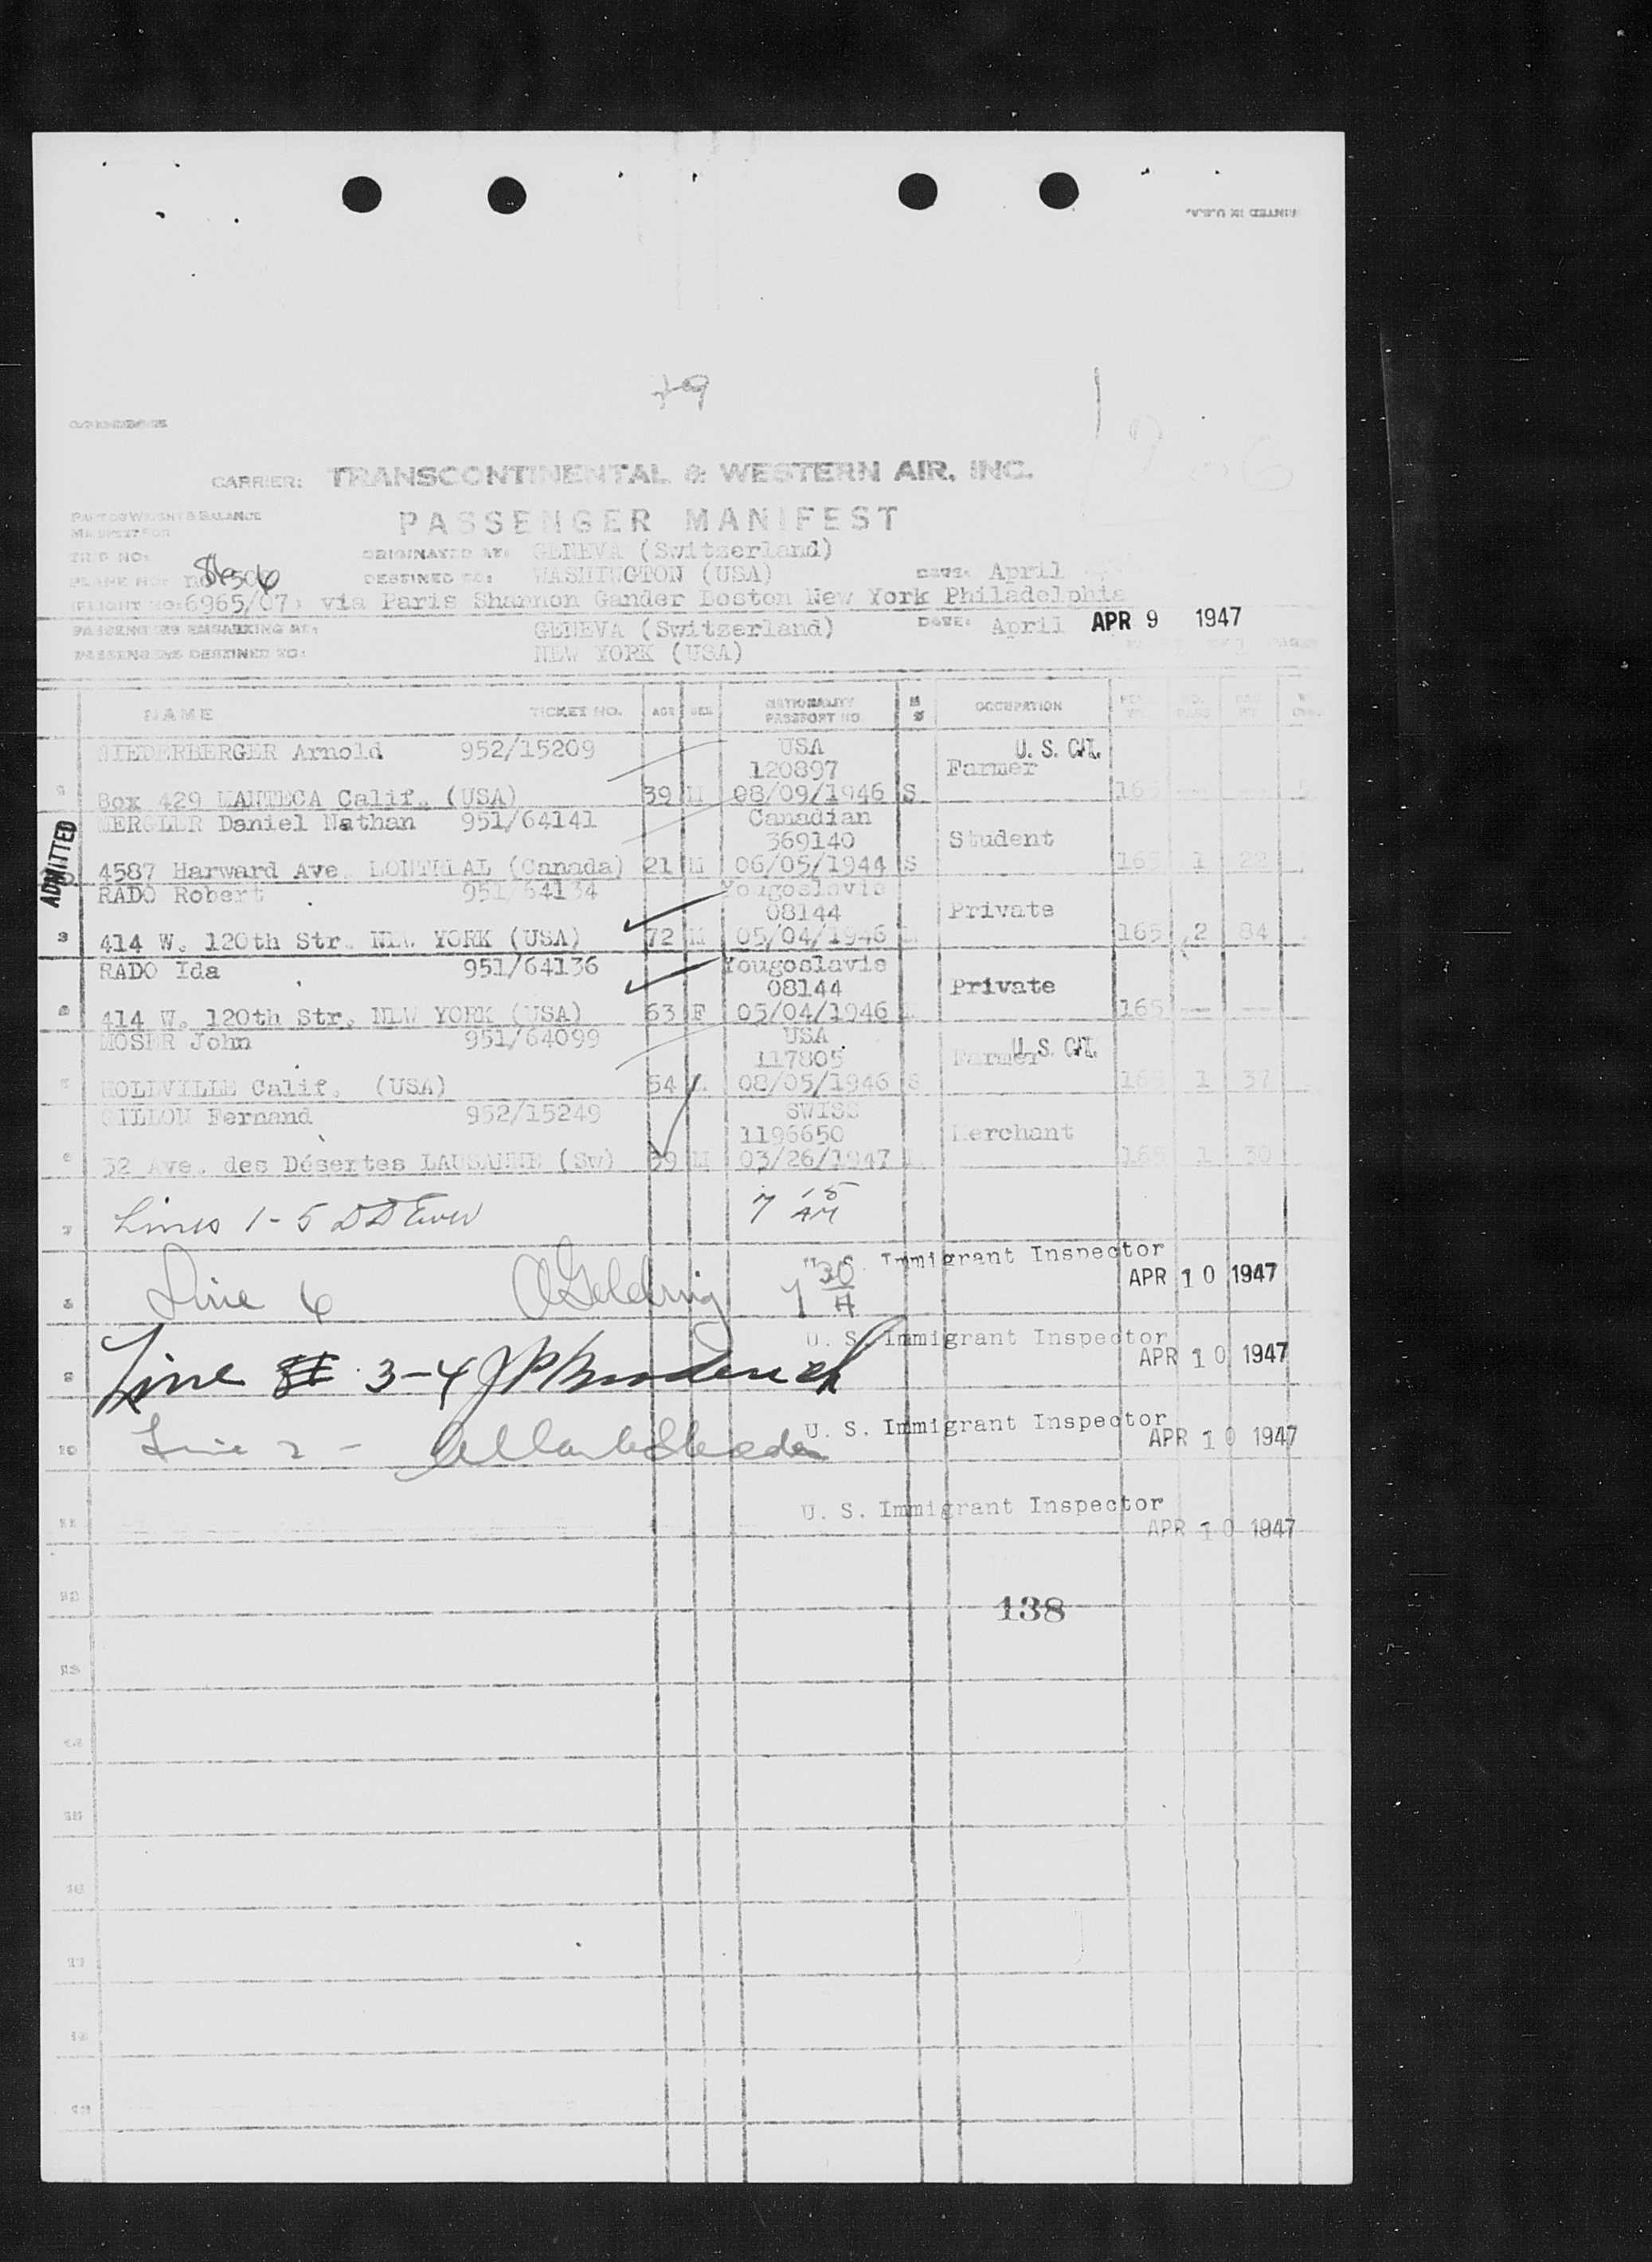 PRINTED IN U.S.A.
CARRIER: TRANSCONTINENTAL & WESTERN AIR, INC.
PART OF WEIGHT & BALANCE
MANIFEST FOR
PASSENGER MANIFEST
TRIP NO:
ORIGINATED AT: GENEVA (Switzerland)
PLANE NO:
DESTINED TO: WASHINGTON (USA) DATE: April
(FLIGHT NO: 6965/07) via Paris Shannon Gander Boston New York Philadelphia
PASSENGERS EMBARKING AT: GENEVA (Switzerland) DATE: April APR 9 1947
PASSENGERS DESTINED TO: NEW YORK (USA)
NAME TICKET NO. AGE SEX NATIONALITY PASSPORT NO. M S OCCUPATION
NIEDERBERGER Arnold 952/15209 USA U. S. CIT.
120897 Farmer
Box 429 MANTECA Calif. (USA) 39 M 08/09/1946 S 165
MERGLER Daniel Nathan 951/64141 Canadian
369140 Student
ADMITTED
4587 Harward Ave. MONTREAL (Canada) 21 M 06/05/1944 S 165 1
RADO Robert 951/64134 Yougoslavie
08144 Private
3 414 W. 120th Str. NEW YORK (USA) 72 M 05/04/1946 165 2 84
RADO Ida 951/64136 Yougoslavie
08144 Private
414 W. 120th Str. NEW YORK (USA) 63 F 05/04/1946 165 — —
MOSER John 951/64099 USA U. S. CIT.
117805 Farmer
HOLEVILLE Calif. (USA) 54 M 08/05/1946 S 165 1 37
GILLON Fernand 952/15249 SWISS
1196650 Merchant
6 32 Ave. des Désertes LAUSANNE (Sw) 59 M 03/26/1947 165 1 30
7 Lines 1-5 7 15 AM
U. S. Immigrant Inspector
8 Line 6 7 30 A APR 10 1947
U. S. Immigrant Inspector
9 Line 3-4 APR 10 1947
U. S. Immigrant Inspector
10 Line 2 - APR 10 1947
11 U. S. Immigrant Inspector
APR 10 1947
12 138
13
14
15
16
17
18
19